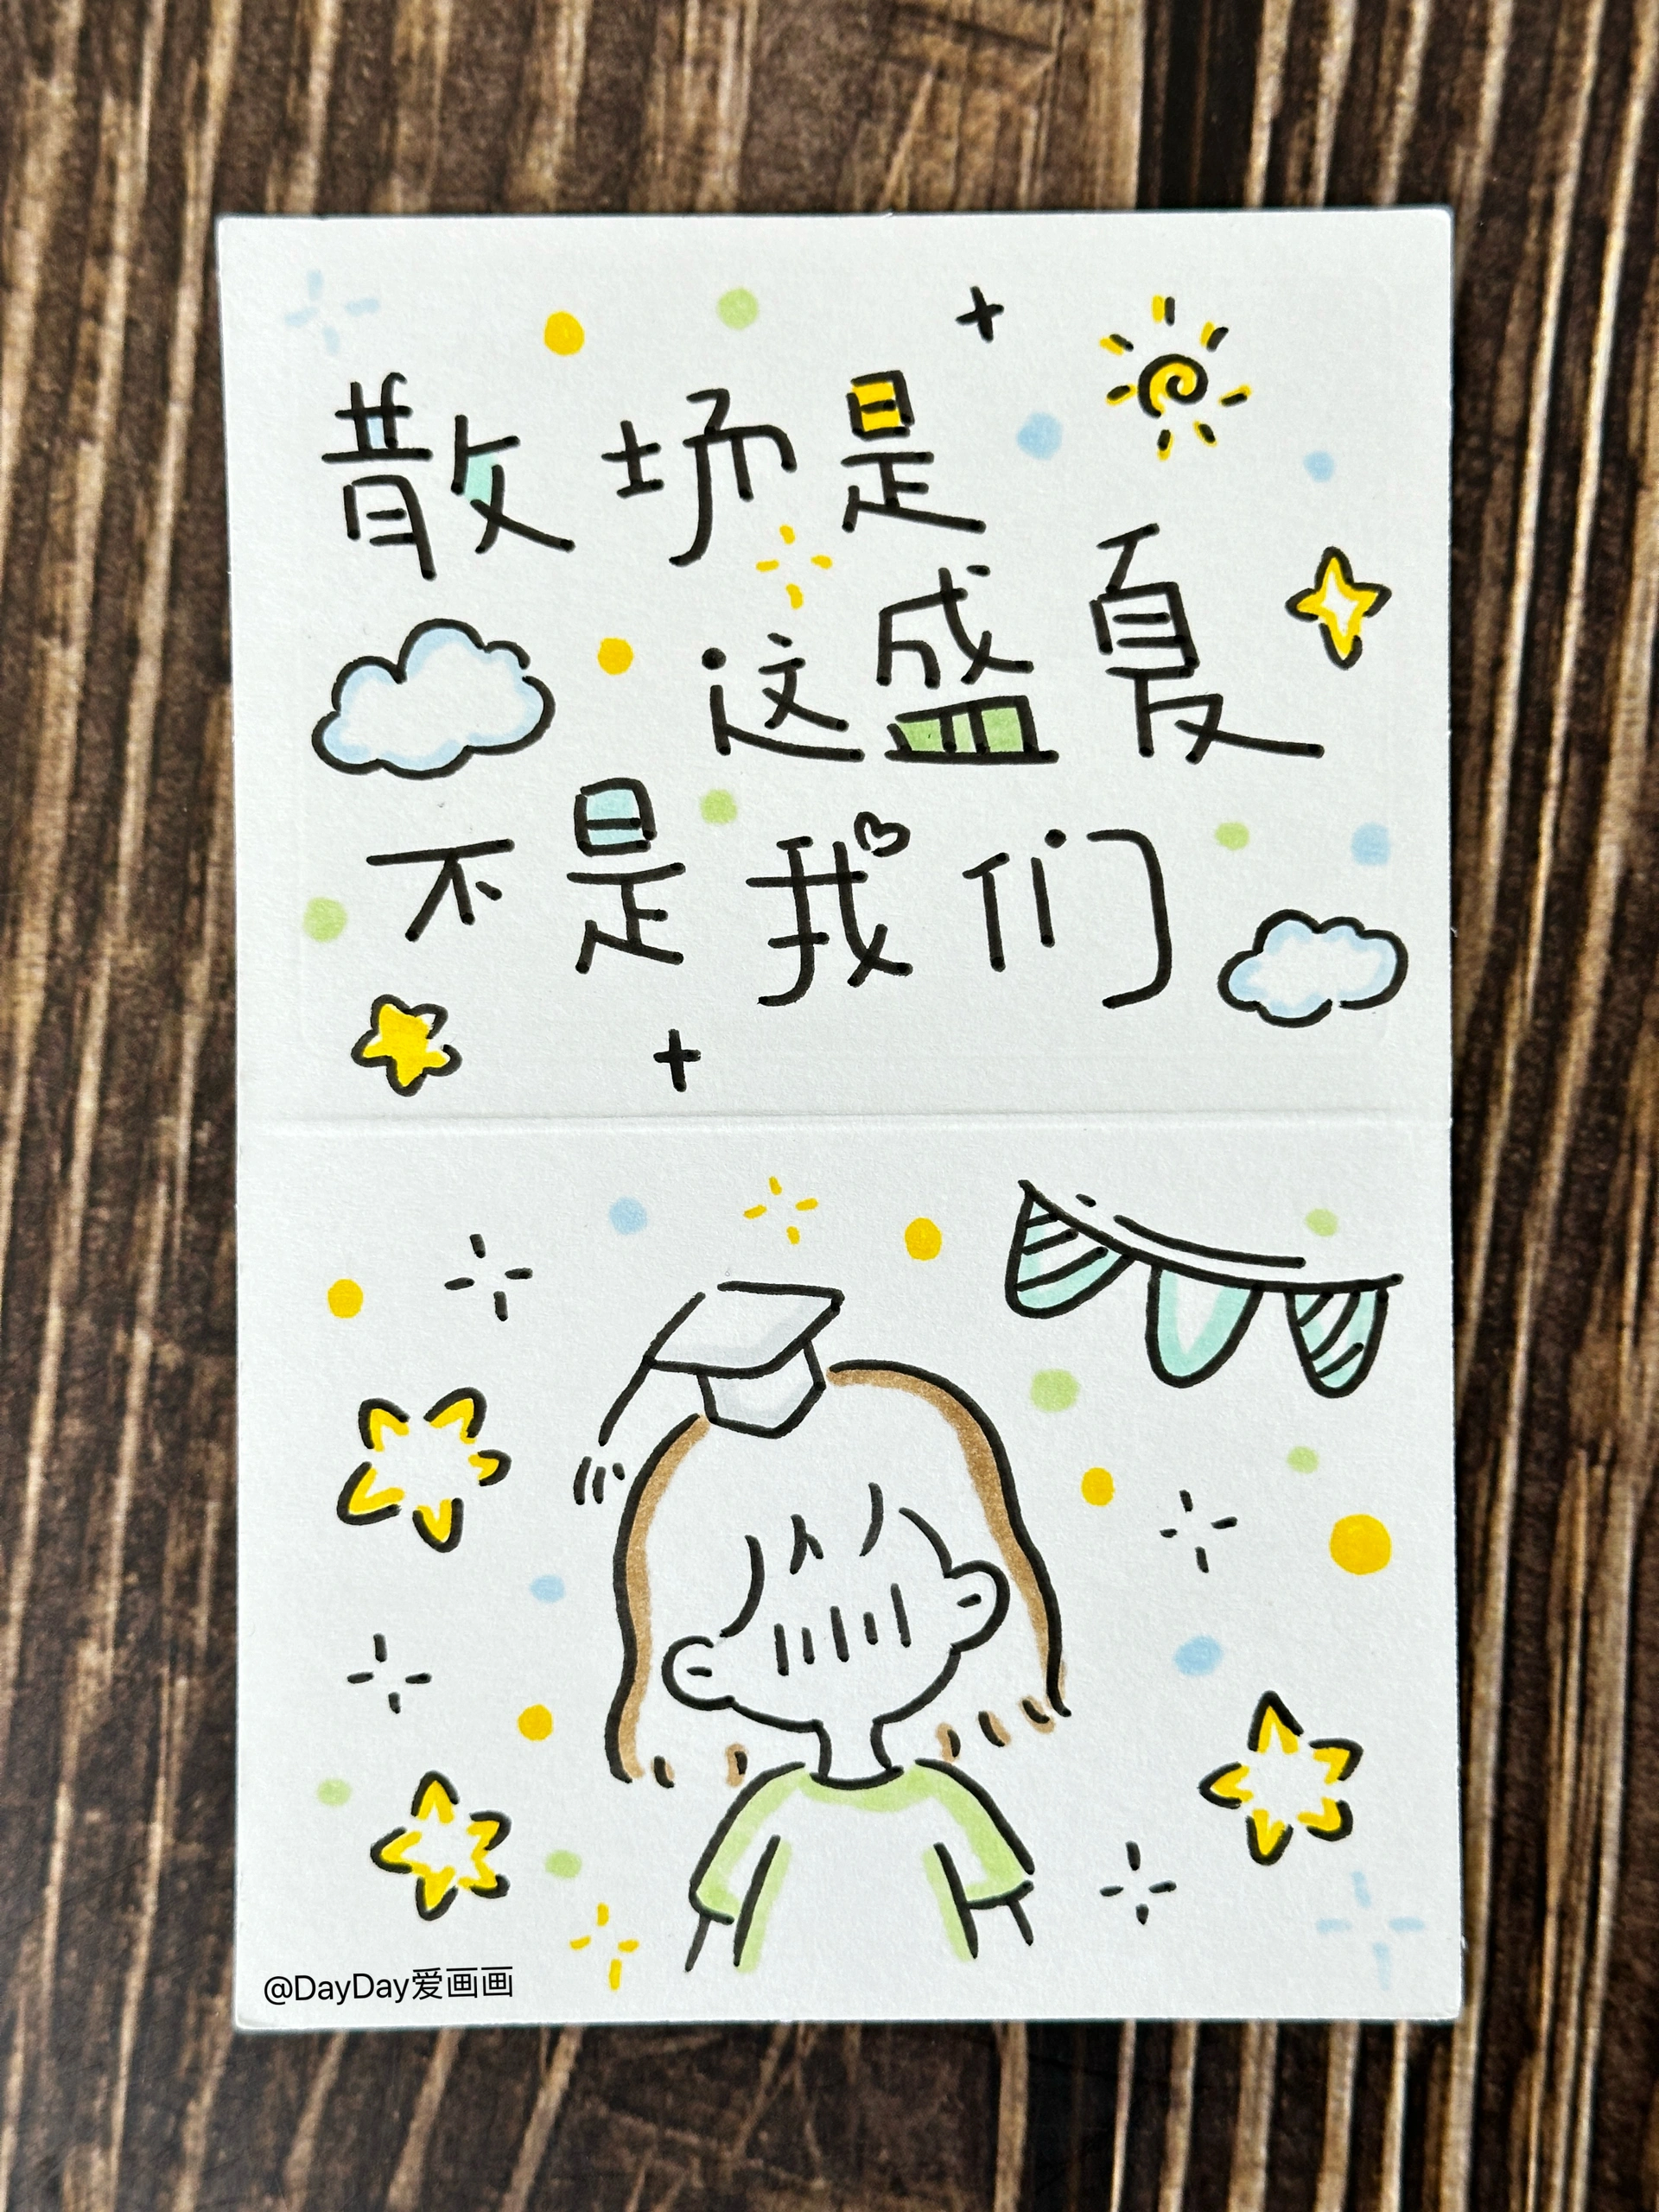 散场是
这盛夏
不是我们
@DayDay爱画画